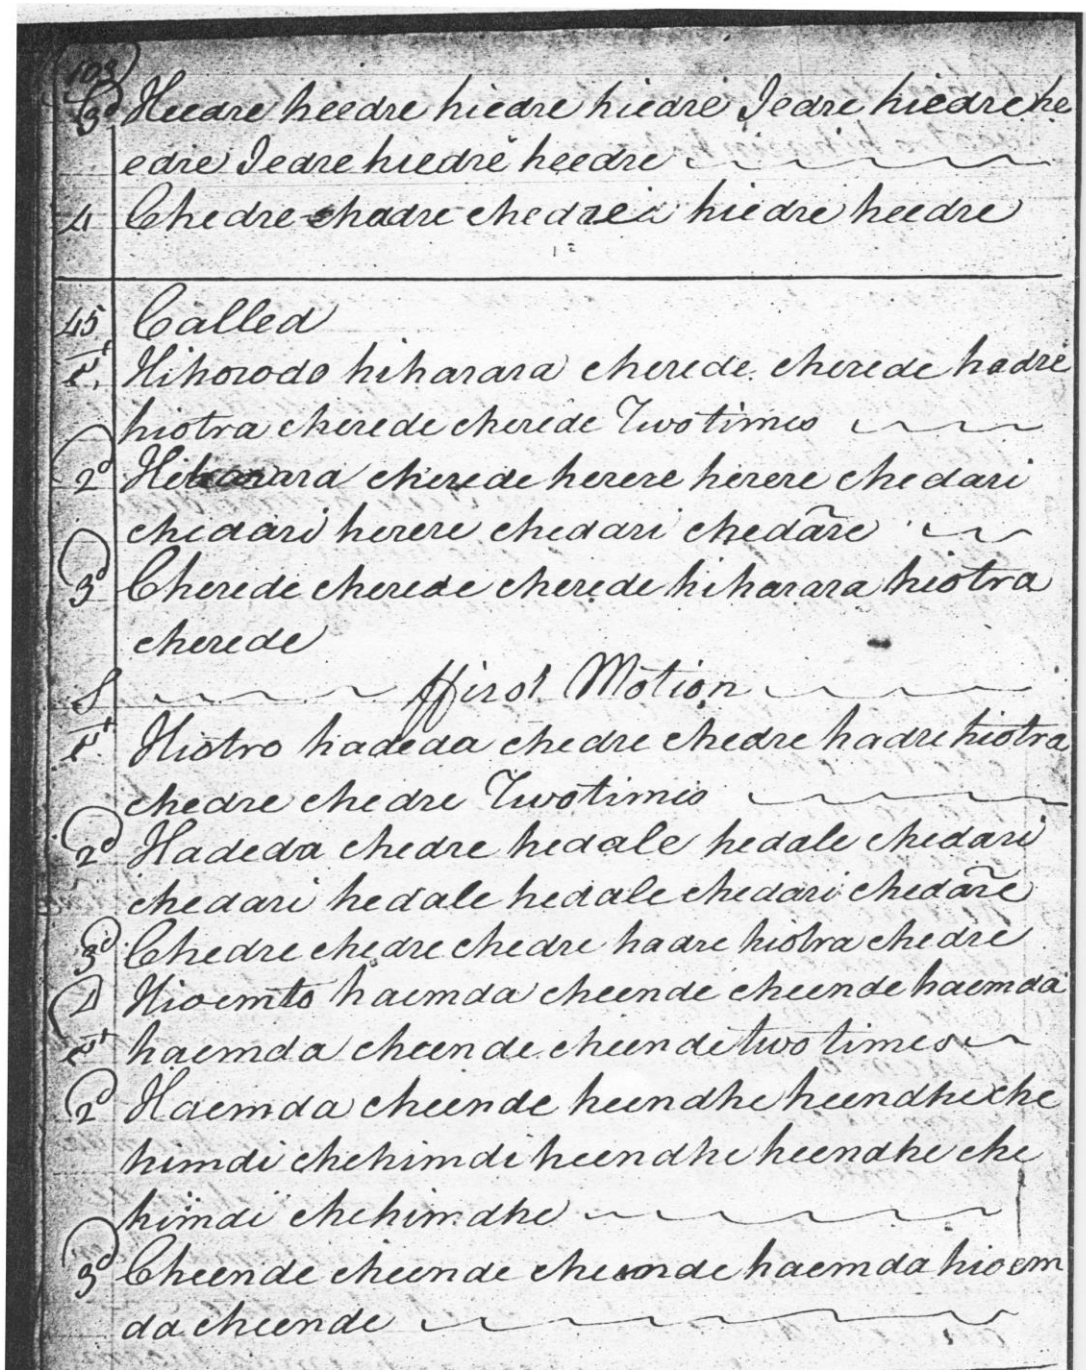 103
3d Heedre heedre hiedre hiedre Jedre hiedre he
edre Jedre hiedre heedre
4 Chedre chadre chedre hiedre heedre
45 Called
1t Hihorodo hiharara cherede cherede hadre
hiotra cherede cherede Twotimes
2d Hiharara cherede herere herere chedari
chedari herere chedari chedãre
3d Cherede cherede cherede hiharara hiotra
cherede
S ffirst Motion
1t Hiotro hadeda chedre chedre hadre hiotra
chedre chedre Twotimes
2d Hadeda chedre hedale hedale chedari
chedari hedale hedale chedari chedãre
3d Chedre chedre chedre hadre hiotra chedre
D Hioemto haemda cheende cheende haemda
1t haemda cheende cheende two times
2d Haemda cheende heendhe heendhe che
himdi chehimdi heendhe heendhe che
himdi chehimdhe
3d Cheende cheende cheende haemda hioem
da cheende